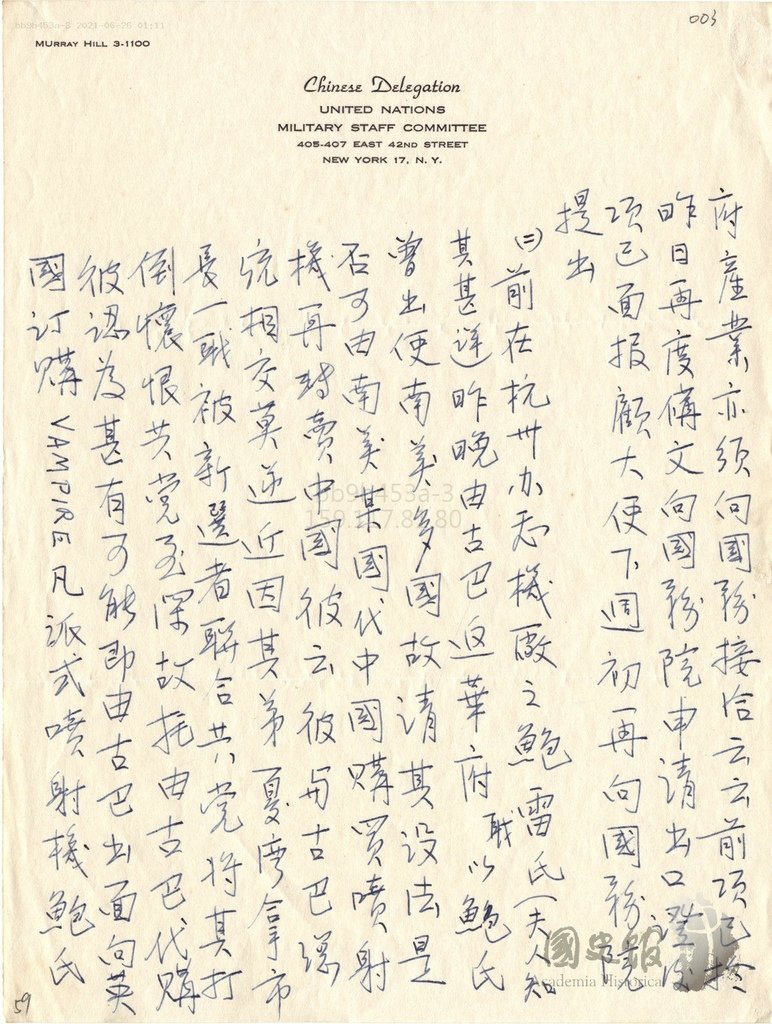 bb9b453a-3 2021-06-26 01:11
003
MURRAY HILL 3-1100
Chinese Delegation
UNITED NATIONS
MILITARY STAFF COMMITTEE
405-407 EAST 42ND STREET
NEW YORK 17, N. Y.
府產業亦須向國務接洽云云前項已於
昨日再度備文向國務院申請出口證後
項已面報顧大使下週初再向國務院
提出
㈡前在杭州办飛機廠之鮑雷氏(夫人知
其甚詳)昨晚由古巴返華府職以鮑氏
曾出使南美多國故請其設法是
否可由南美某國代中國購買噴射
機再轉賣中國彼云彼与古巴總
統相交莫逆近因其弟夏灣拿市
長一職被新選者聯合共党将其打
倒懷恨共党至深故托由古巴代購
彼認為甚有可能即由古巴出面向英
國訂購VAMPIRE凡派式噴射機鮑氏
59
bb9b453a-3
國史館
Academia Historica